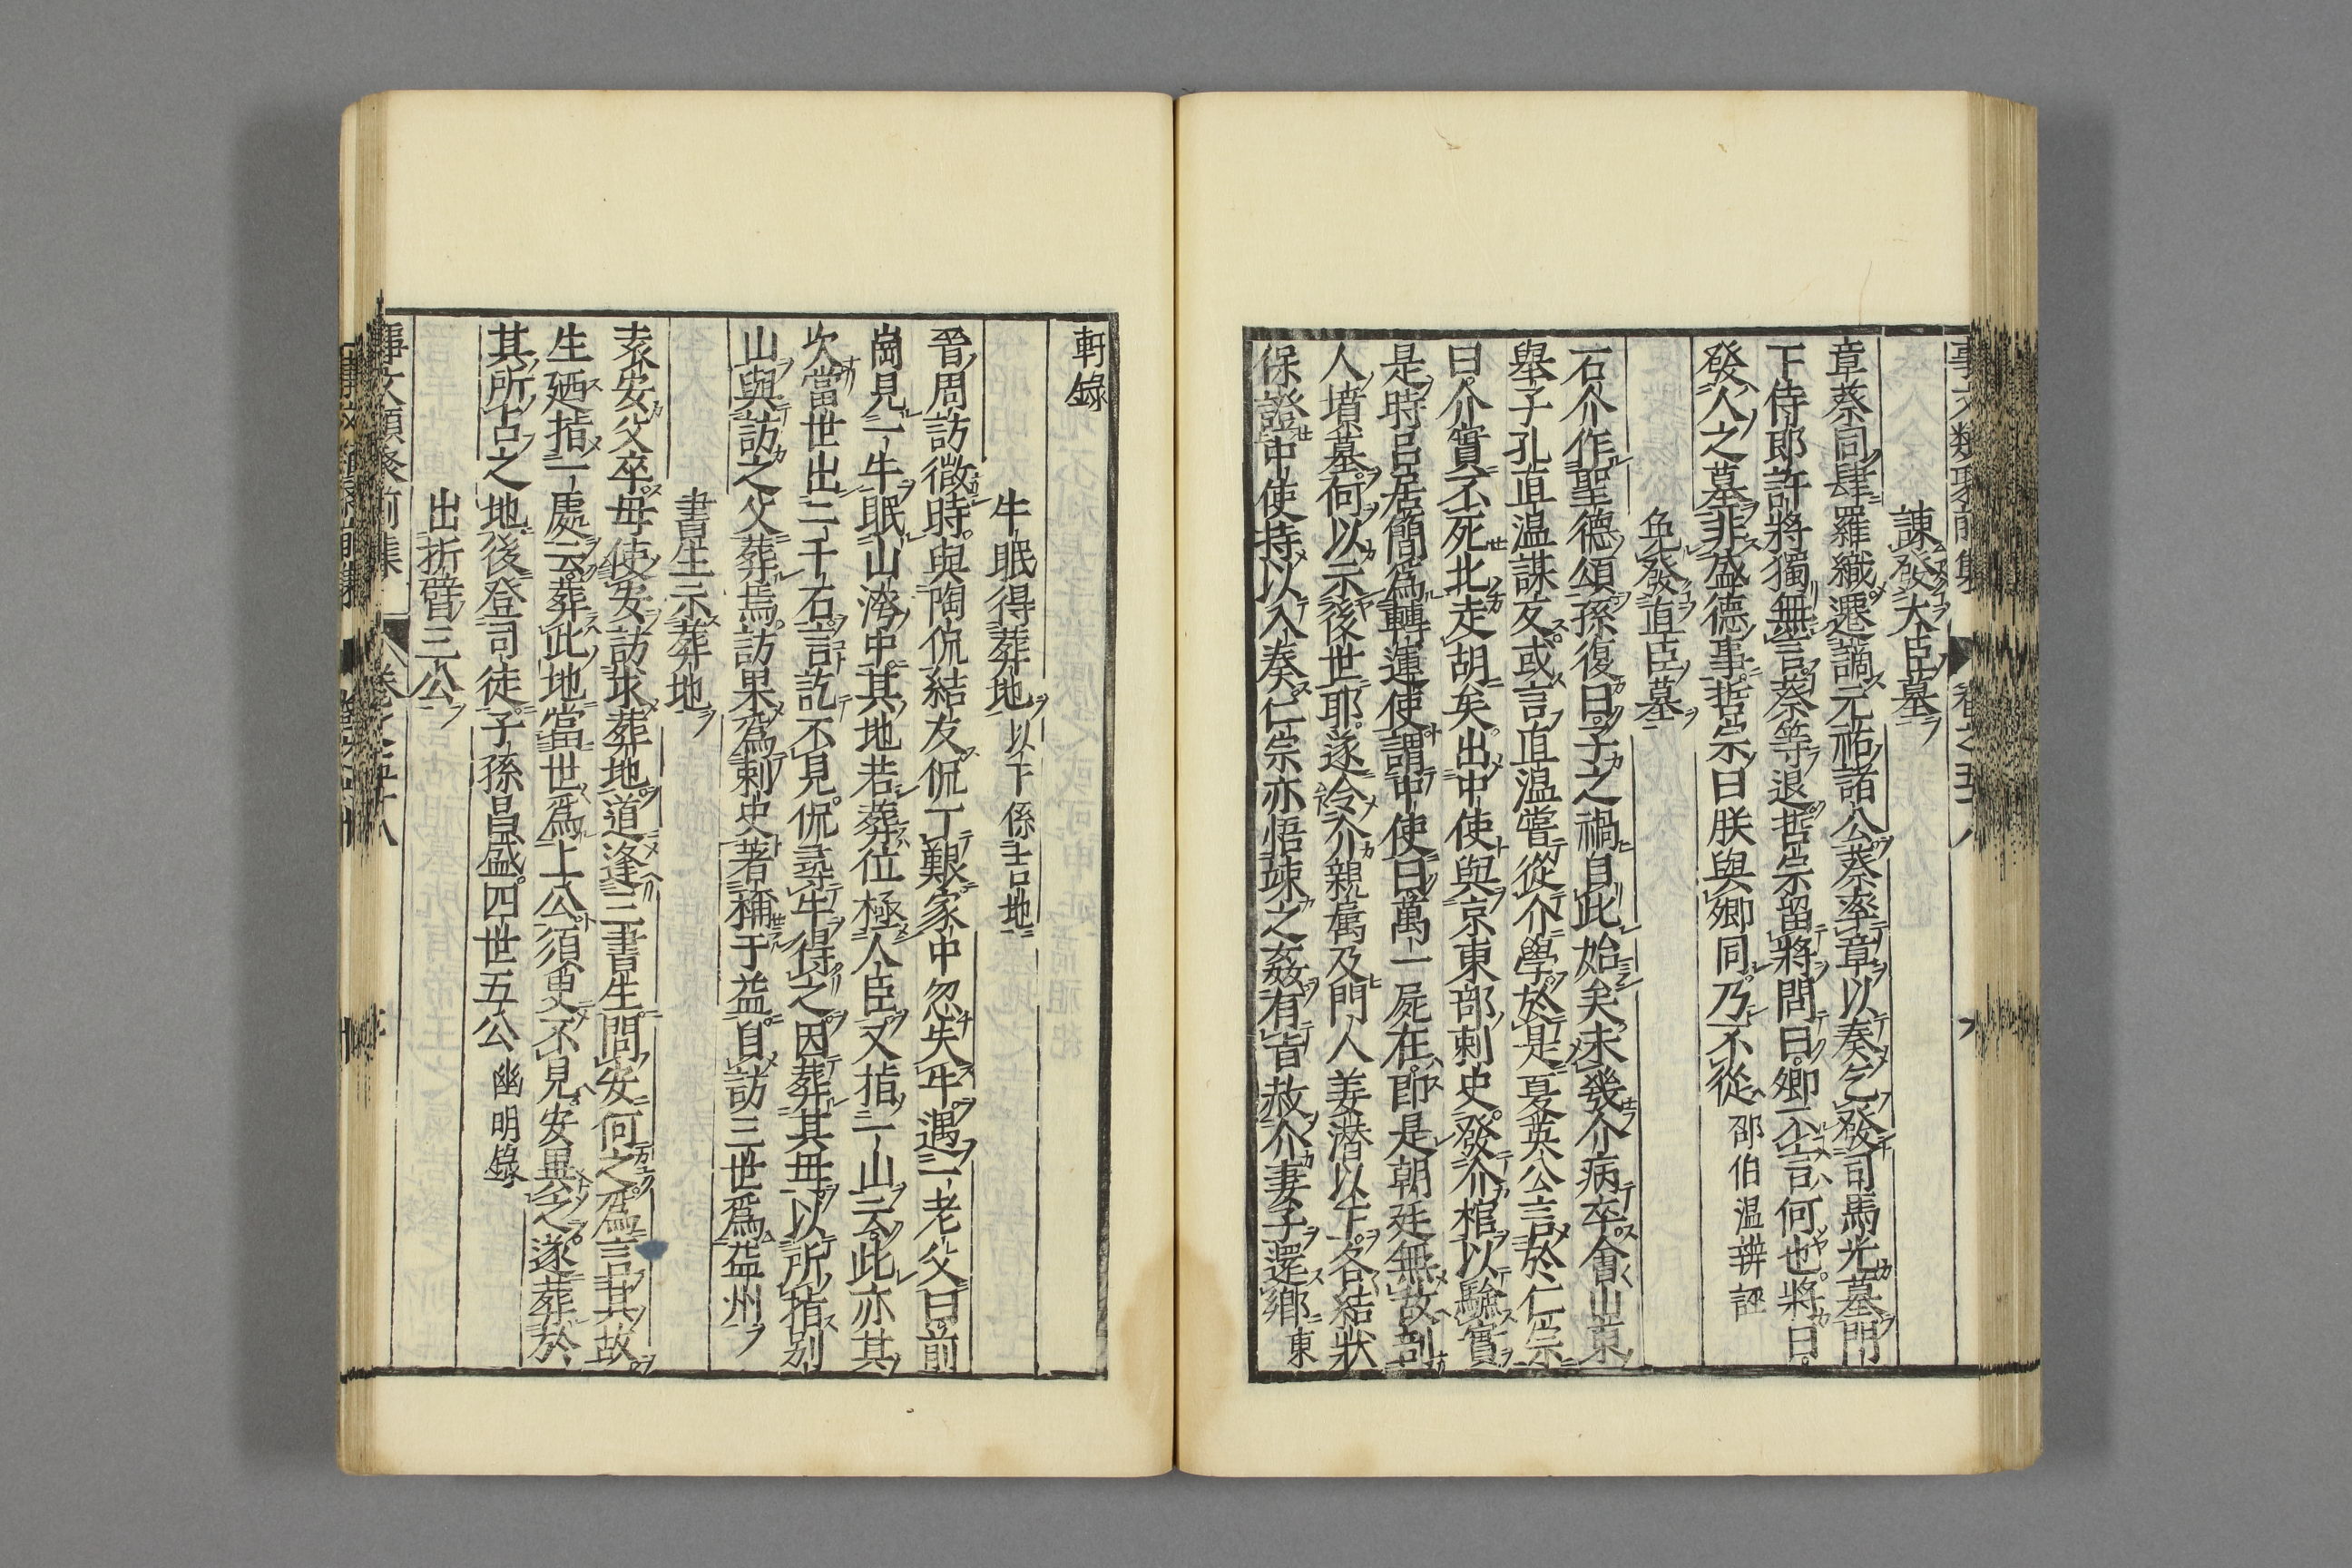 事文類聚前集 卷之五十八
諫發大臣墓
章蔡同肆羅織遷謫元祐諸公蔡率章以奏乞發司馬光墓門
下侍郎許將獨無言蔡等退哲宗留將問曰卿不言何也將曰
發人之墓非盛德事哲宗曰朕與卿同乃不從 邵伯温辨誣
免發直臣墓
石介作聖德頌孫復曰子之禍自此始矣未幾介病卒會山東
舉子孔直温謀反或言直温嘗從介學於是夏英公言於仁宗
曰介實不死北走胡矣出中使與京東部刺史發介棺以驗實
是時呂居簡為轉運使謂中使曰萬一屍在即是朝廷無故剖
人墳墓何以示後世耶遂令介親屬及門人姜潜以下各結狀
保證中使持以入奏仁宗亦悟竦之姦有旨赦介妻子還鄉 東
軒錄
牛眠得葬地 以下係吉地
晉周訪微時與陶侃結友侃丁艱家中忽失牛遇一老父曰前
崗見一牛眠山洿中其地若葬位極人臣又指一山云此亦其
次當世出二千石言訖不見侃尋牛得之因葬其母以所指別
山與訪之父葬焉訪果為刺史著稱于益自訪三世為益州
書生示葬地
袁安父卒母使安訪求葬地道逢三書生問安何之為言其故
生廼指一處云葬此地當世為上公須臾不見安異之遂葬於
其所占之地後登司徒子孫昌盛四世五公 幽明錄
出折臂三公
事文類聚前集 卷之五十八